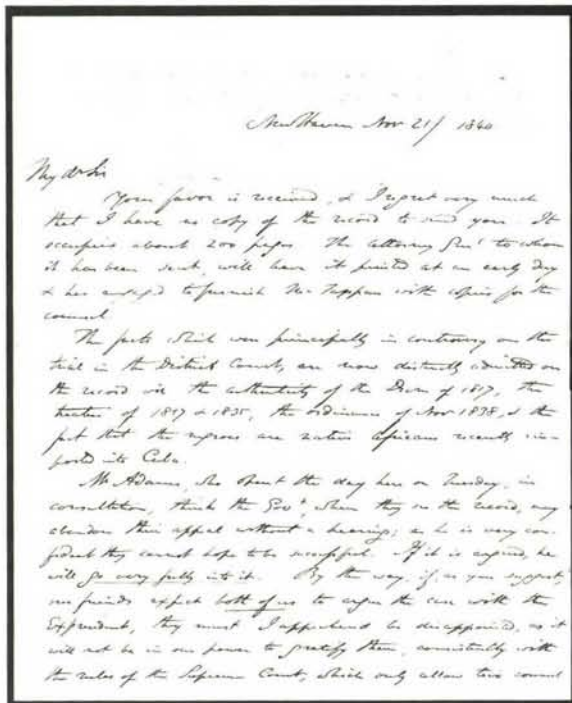 New Haven Nov 21/ 1840
My dr Sir
Your favor is received, & I regret very much
that I have no copy of the record to send you. It
occupies about 200 pages. The Attorney Genl to whom
it has been sent, will have it printed at an early day
& has engaged to furnish Mr Tappan with copies for the
counsel
The facts which were principally in controversy on the
trial in the District Court, are now distinctly admitted on
the record viz the authenticity of the Decree of 1817, the
treaties of 1817 & 1835, the ordinance of Nov 1838, & the
fact that the negroes are native Africans recently im-
ported into Cuba.
Mr Adams, who spent the day here on Tuesday, in
consultation, thinks the Govt, when they see the record, may
abandon their appeal without a hearing; as he is very con-
fident they cannot hope to be successful. If it is argued, he
will go very fully into it. By the way, if, as you suggest,
our friends expect both of us to argue the case with the
Expresident, they must I apprehend be disappointed, as it
will not be in our power to gratify them, consistently with
the rules of the Supreme Court, which only allow two counsel